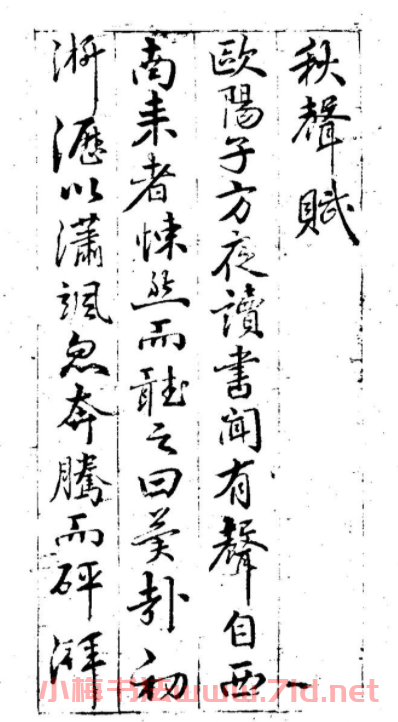 秋聲賦
歐陽子方夜讀書聞有聲自西
南来者悚然而聽之曰異哉初
淅瀝以瀟颯忽奔騰而砰湃
小梅书法www.7id.net